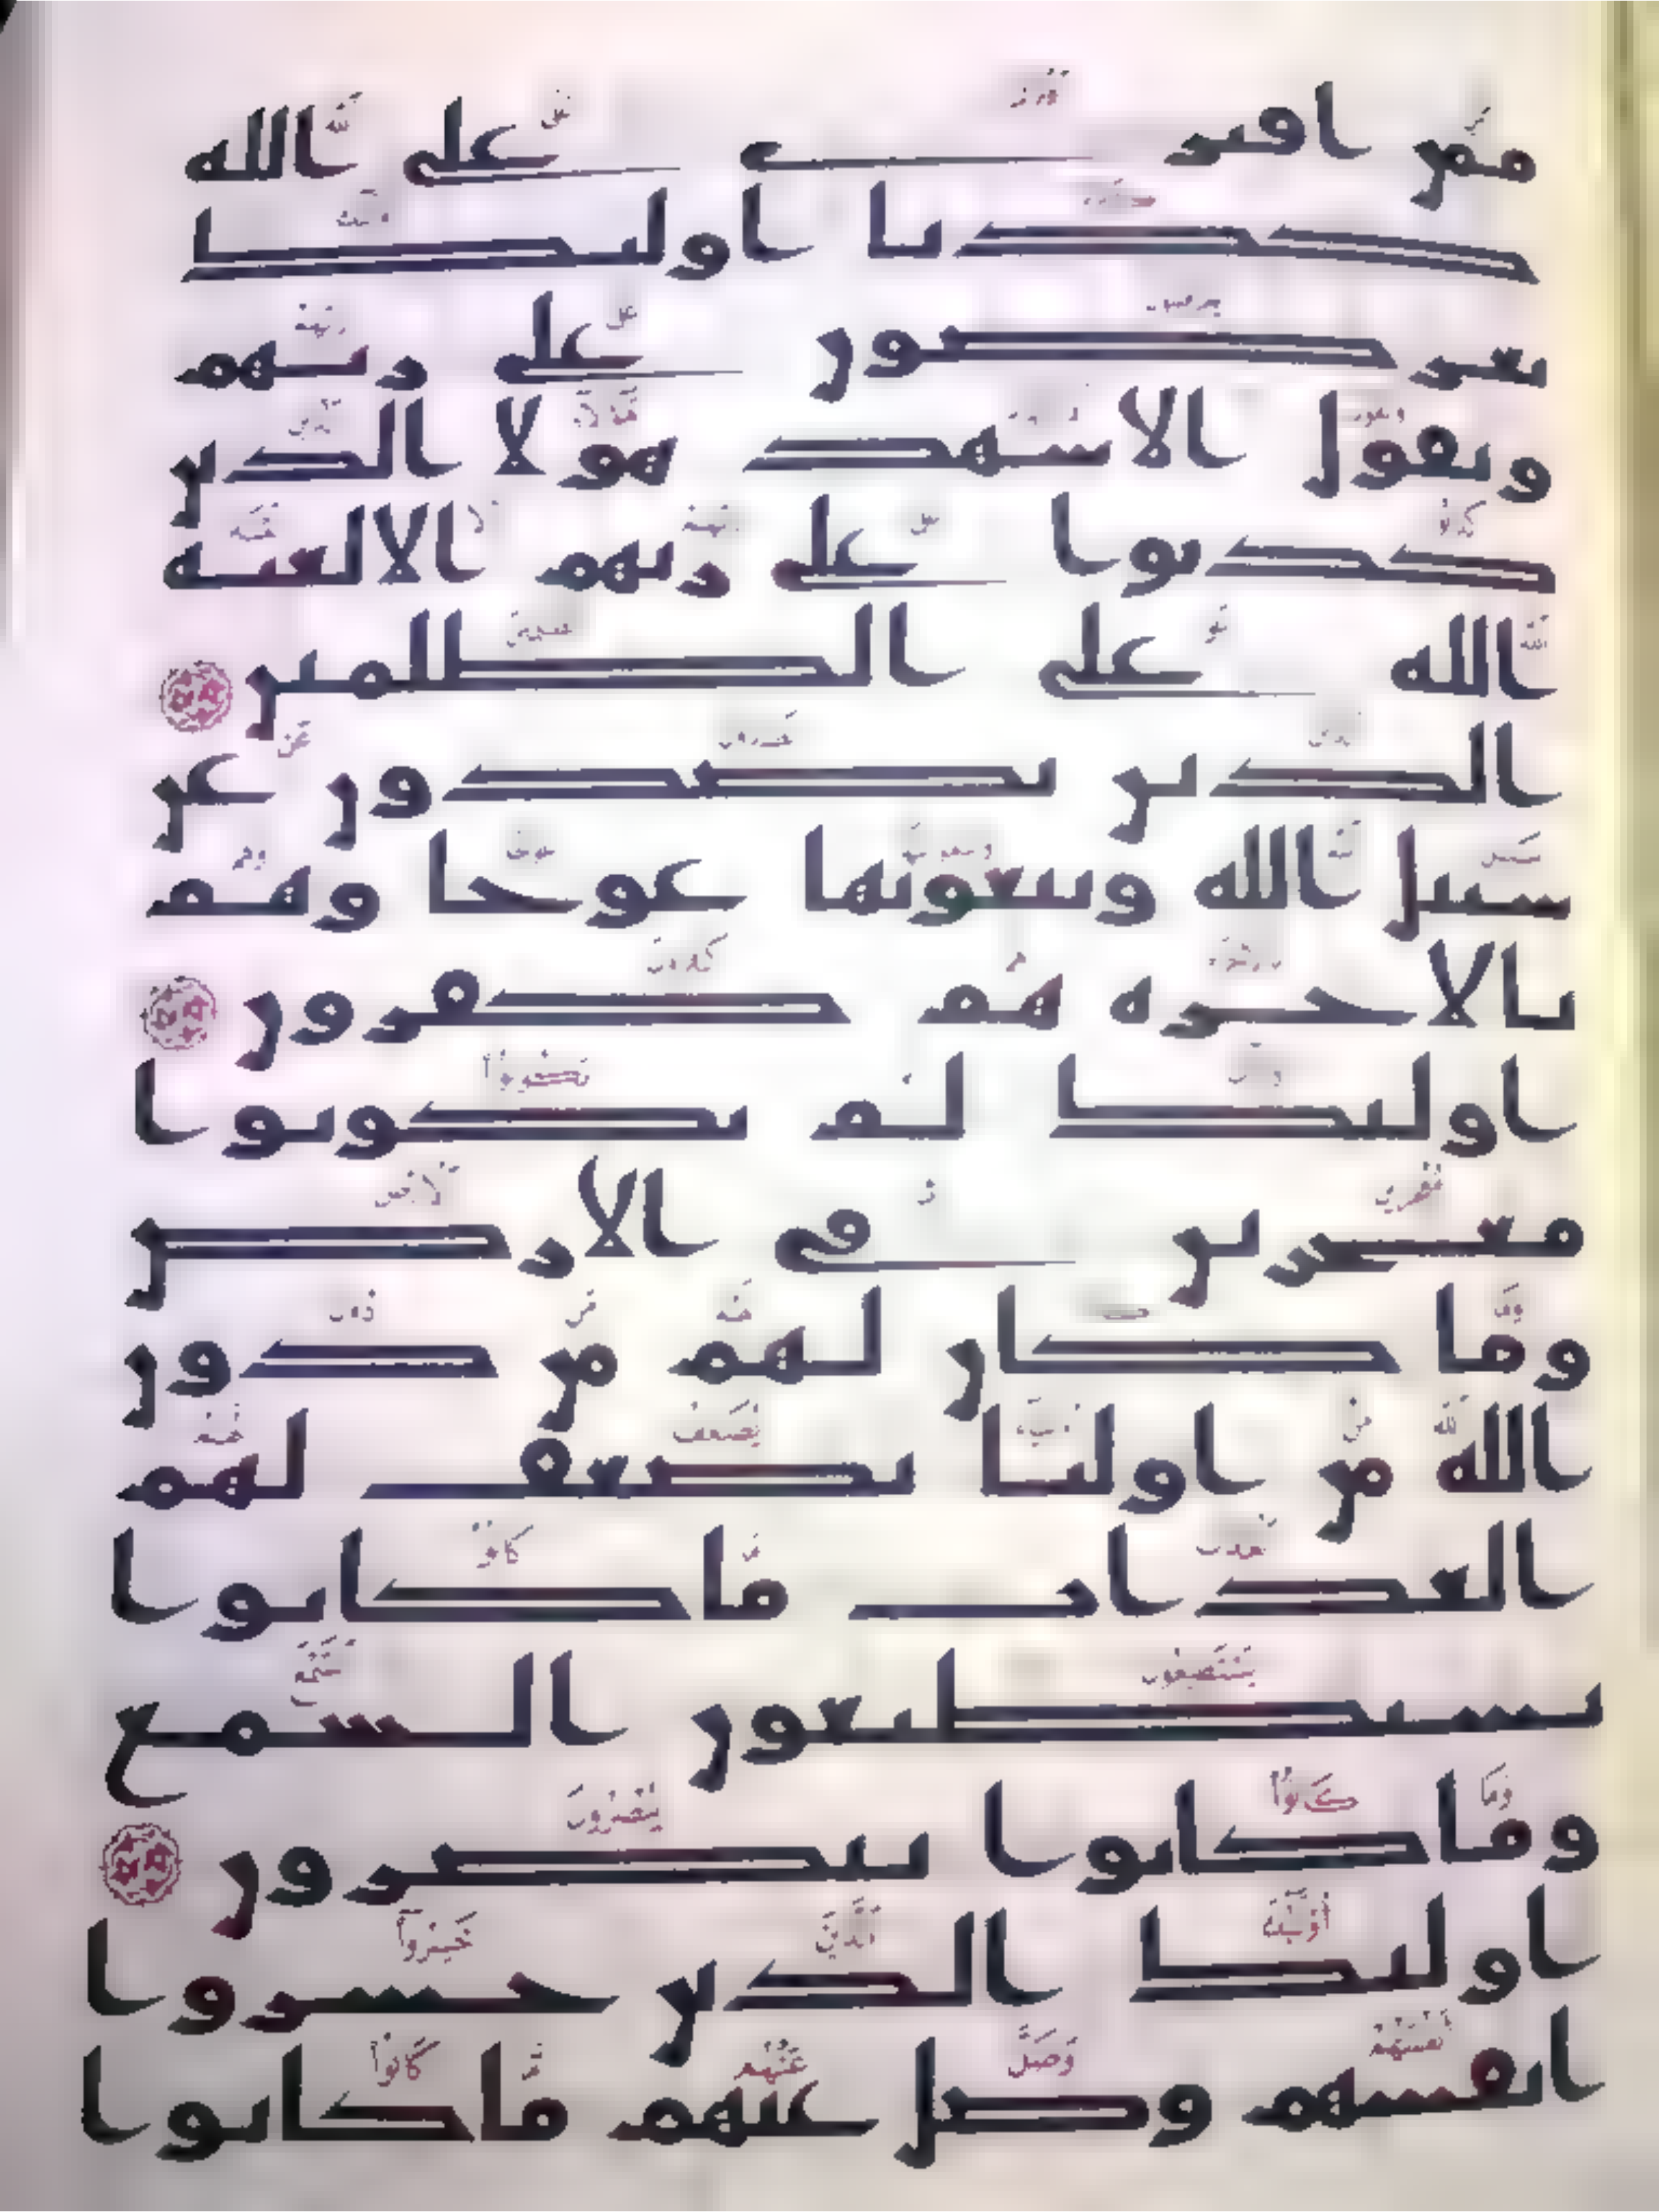 ممن افترى على الله
كذبا اولئك
يعرضون على ربهم
ويقول الاشهد هولا الذين
كذبوا على ربهم الا لعنة
الله على الظلمين
الذين يصدون عن
سبيل الله ويبغونها عوجا وهم
بالاخرة هم كفرون
اولئك لم يكونوا
معجزين في الارض
وما كان لهم من دون
الله من اوليا يضعف لهم
العذاب ما كانوا
يستطيعون السمع
وما كانوا يبصرون
اولئك الذين خسروا
انفسهم وضل عنهم ما كانوا